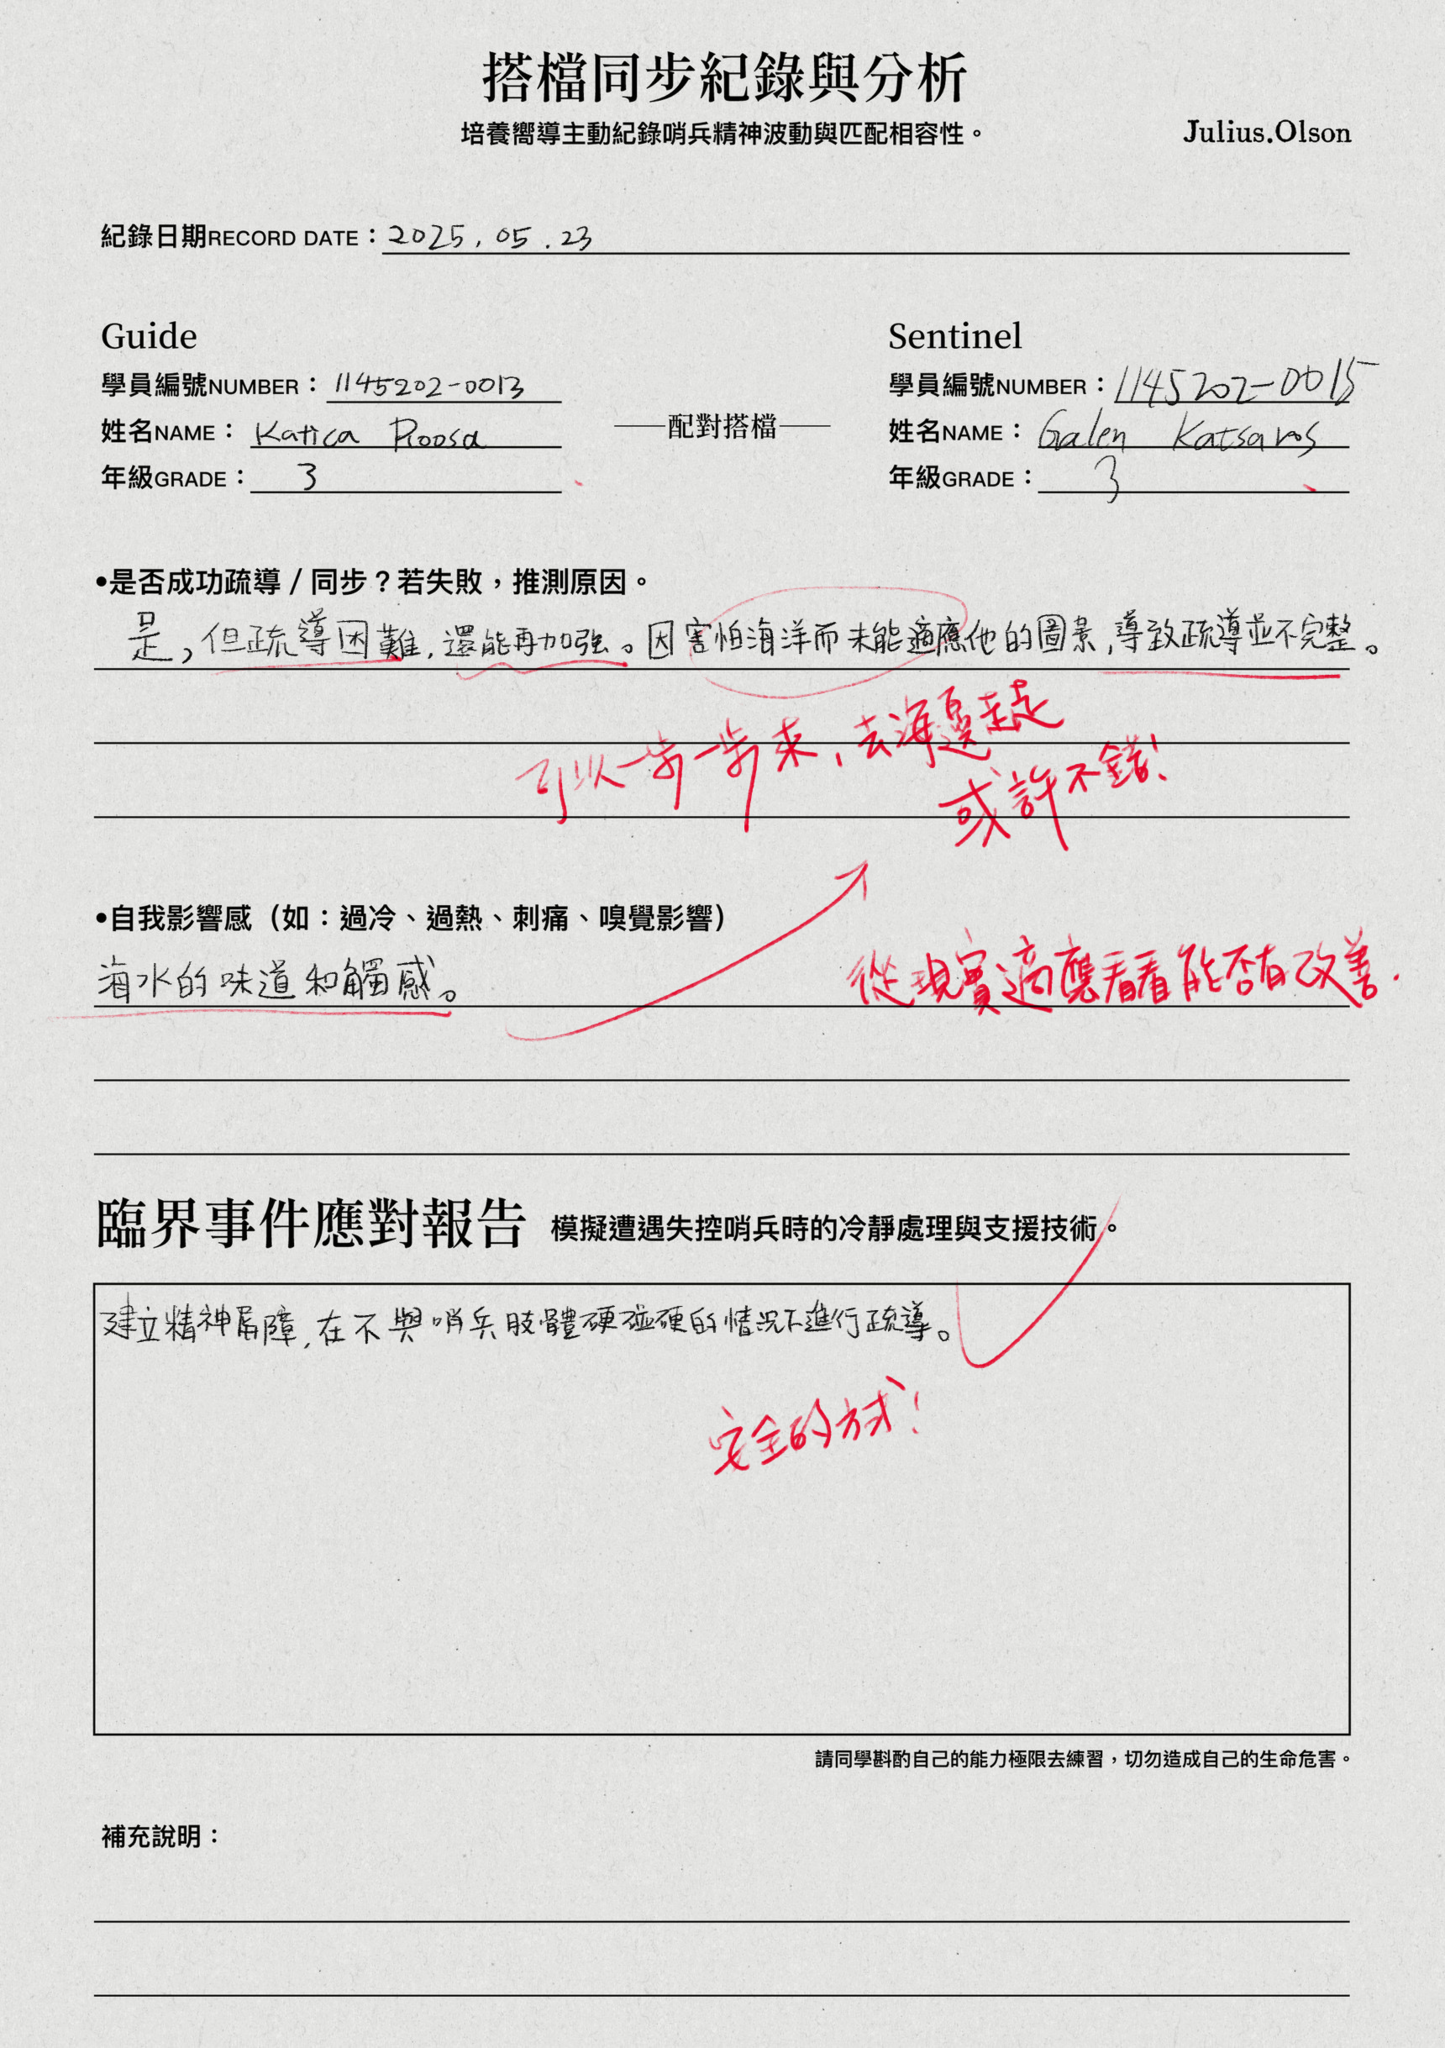 搭檔同步紀錄與分析
培養嚮導主動紀錄哨兵精神波動與匹配相容性。
Julius.Olson
紀錄日期RECORD DATE：2025.05.23
Guide
學員編號NUMBER：1145202-0013
姓名NAME：Katica Roosa
年級GRADE：3
——配對搭檔——
Sentinel
學員編號NUMBER：1145202-0015
姓名NAME：Galen Katsaros
年級GRADE：3
•是否成功疏導 / 同步？若失敗，推測原因。
是，但疏導困難，還能再加強。因害怕海洋而未能適應他的圖景，導致疏導並不完整。
可以一步一步來，去海邊走走
或許不錯！
•自我影響感（如：過冷、過熱、刺痛、嗅覺影響）
海水的味道和觸感。
從現實適應看看能否有改善.
臨界事件應對報告 模擬遭遇失控哨兵時的冷靜處理與支援技術。
建立精神屏障，在不與哨兵肢體硬碰硬的情況下進行疏導。
安全的方式！
請同學斟酌自己的能力極限去練習，切勿造成自己的生命危害。
補充說明：